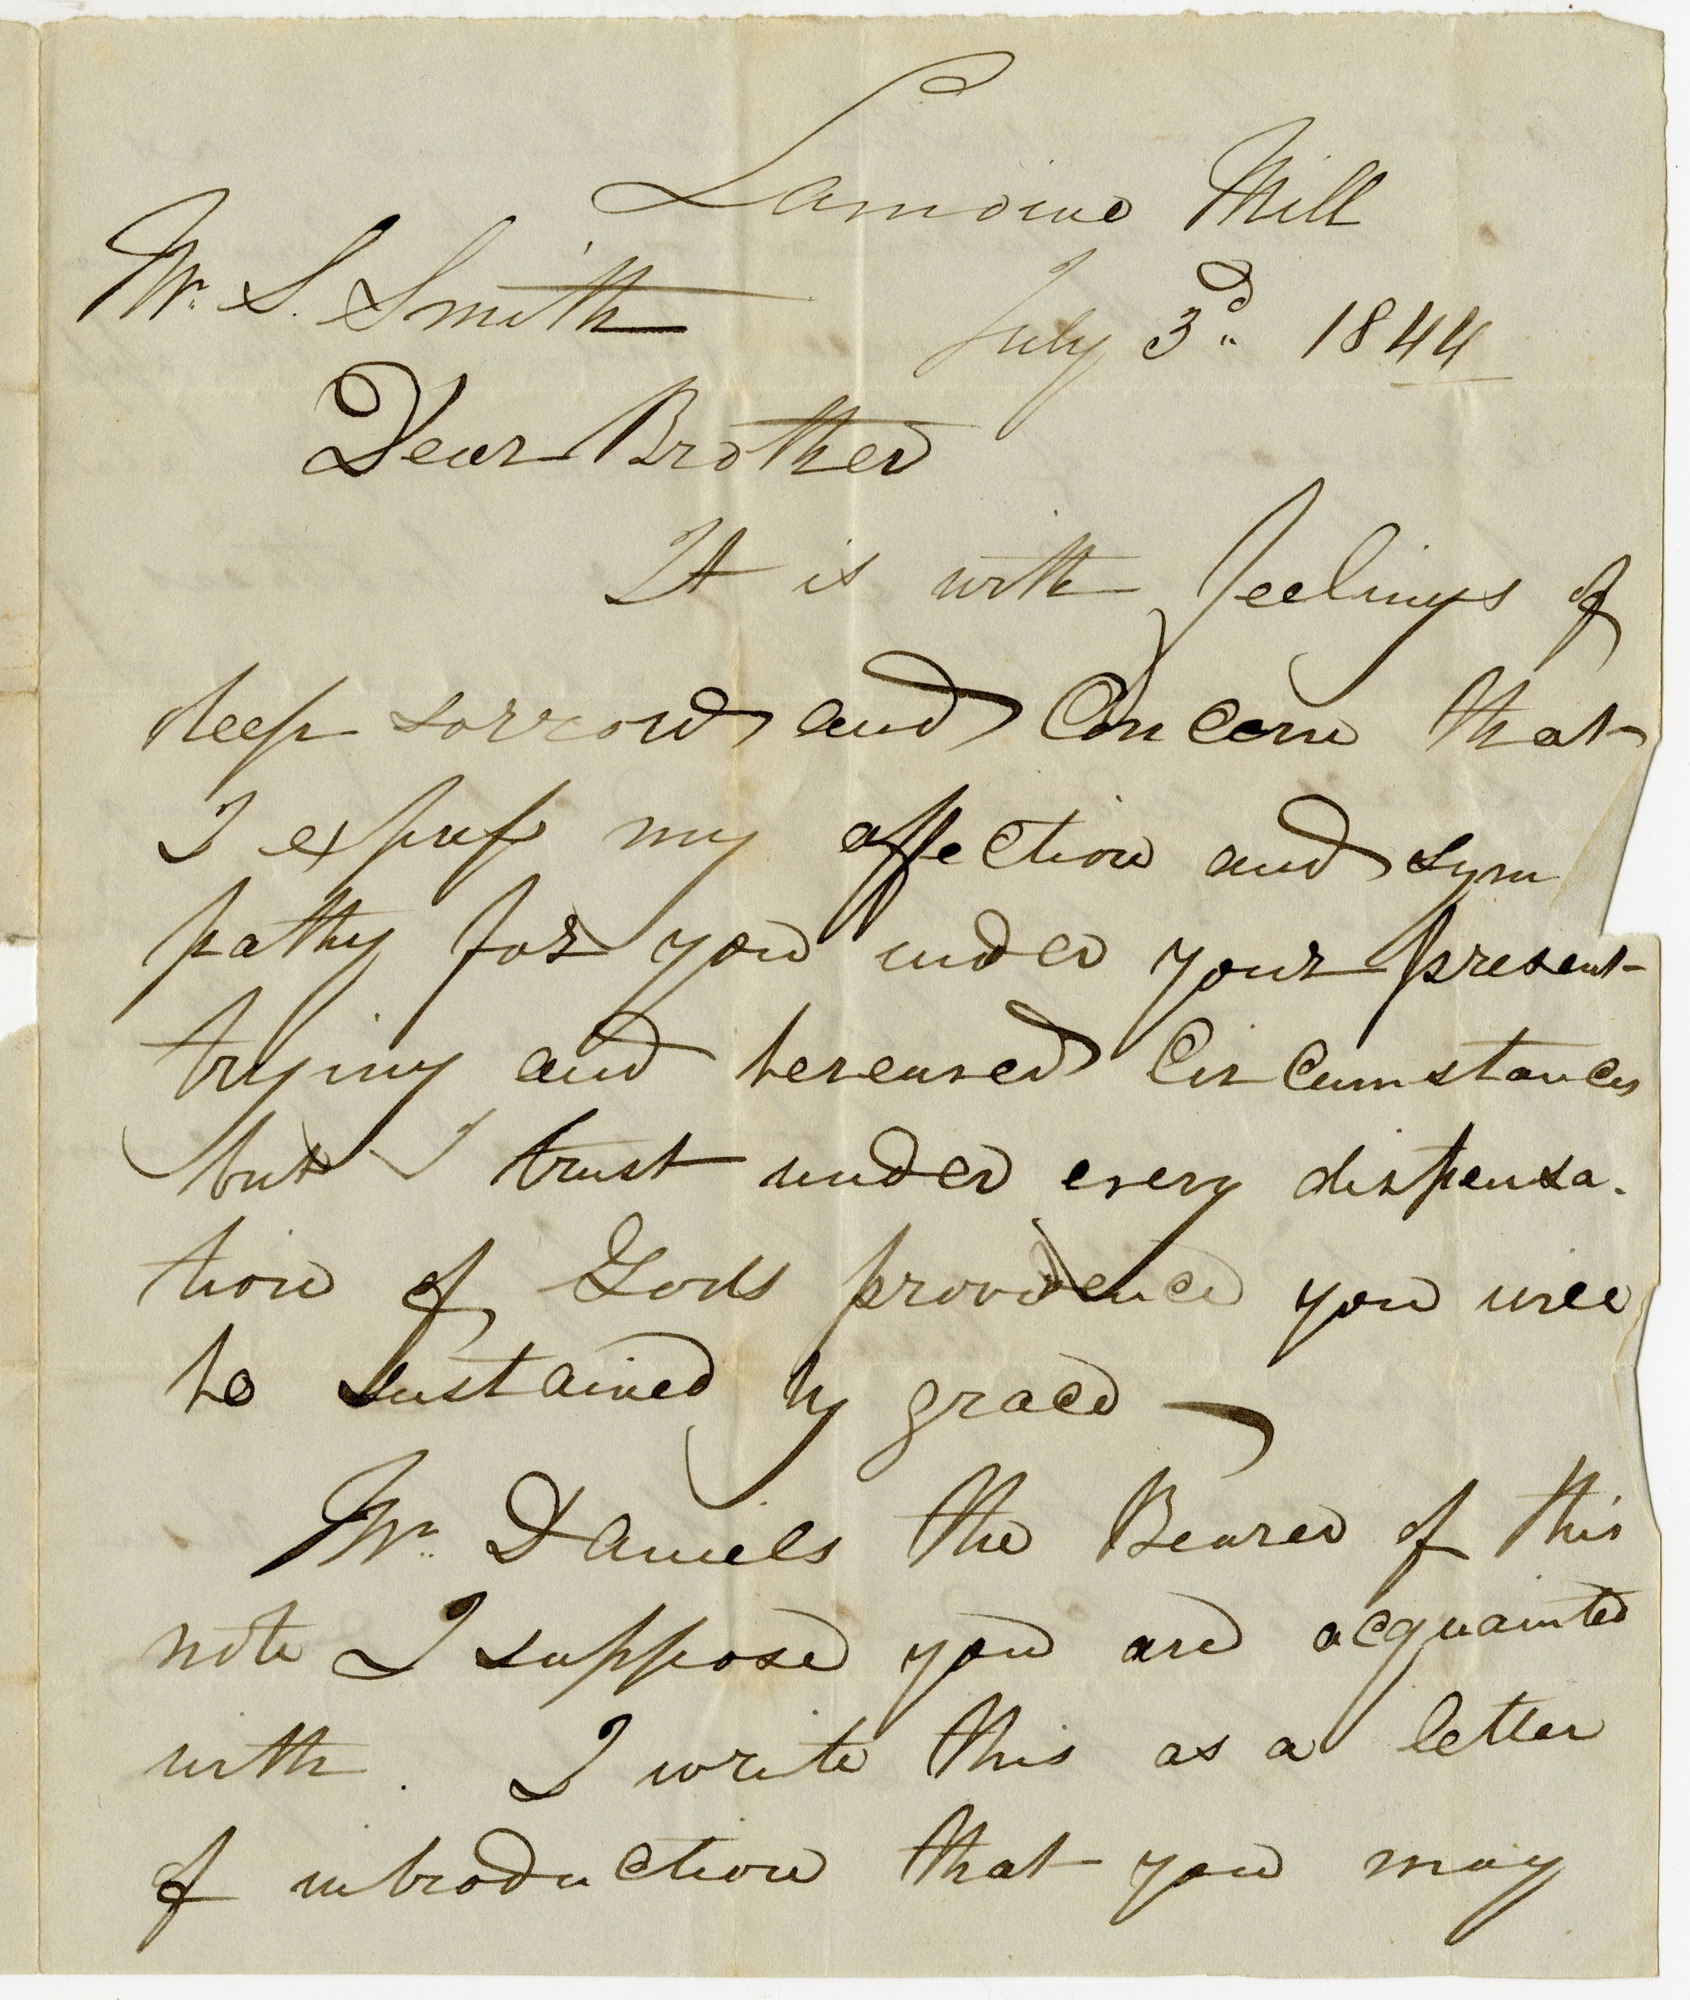 Lamoine Mill
Mr. S. Smith
July 3d. 1844
Dear Brother
It is with feelings of
deep sorrow and Concern that
I express my affection and sym
pathy for you under your present
trying and bereaved Circumstances
but I trust under every dispensa-
tion of Gods providence you will
be sustained by grace —
Mr. Daniels the Bearer of this
note I suppose you are acquainted
with. I write this as a letter
of introduction that you may